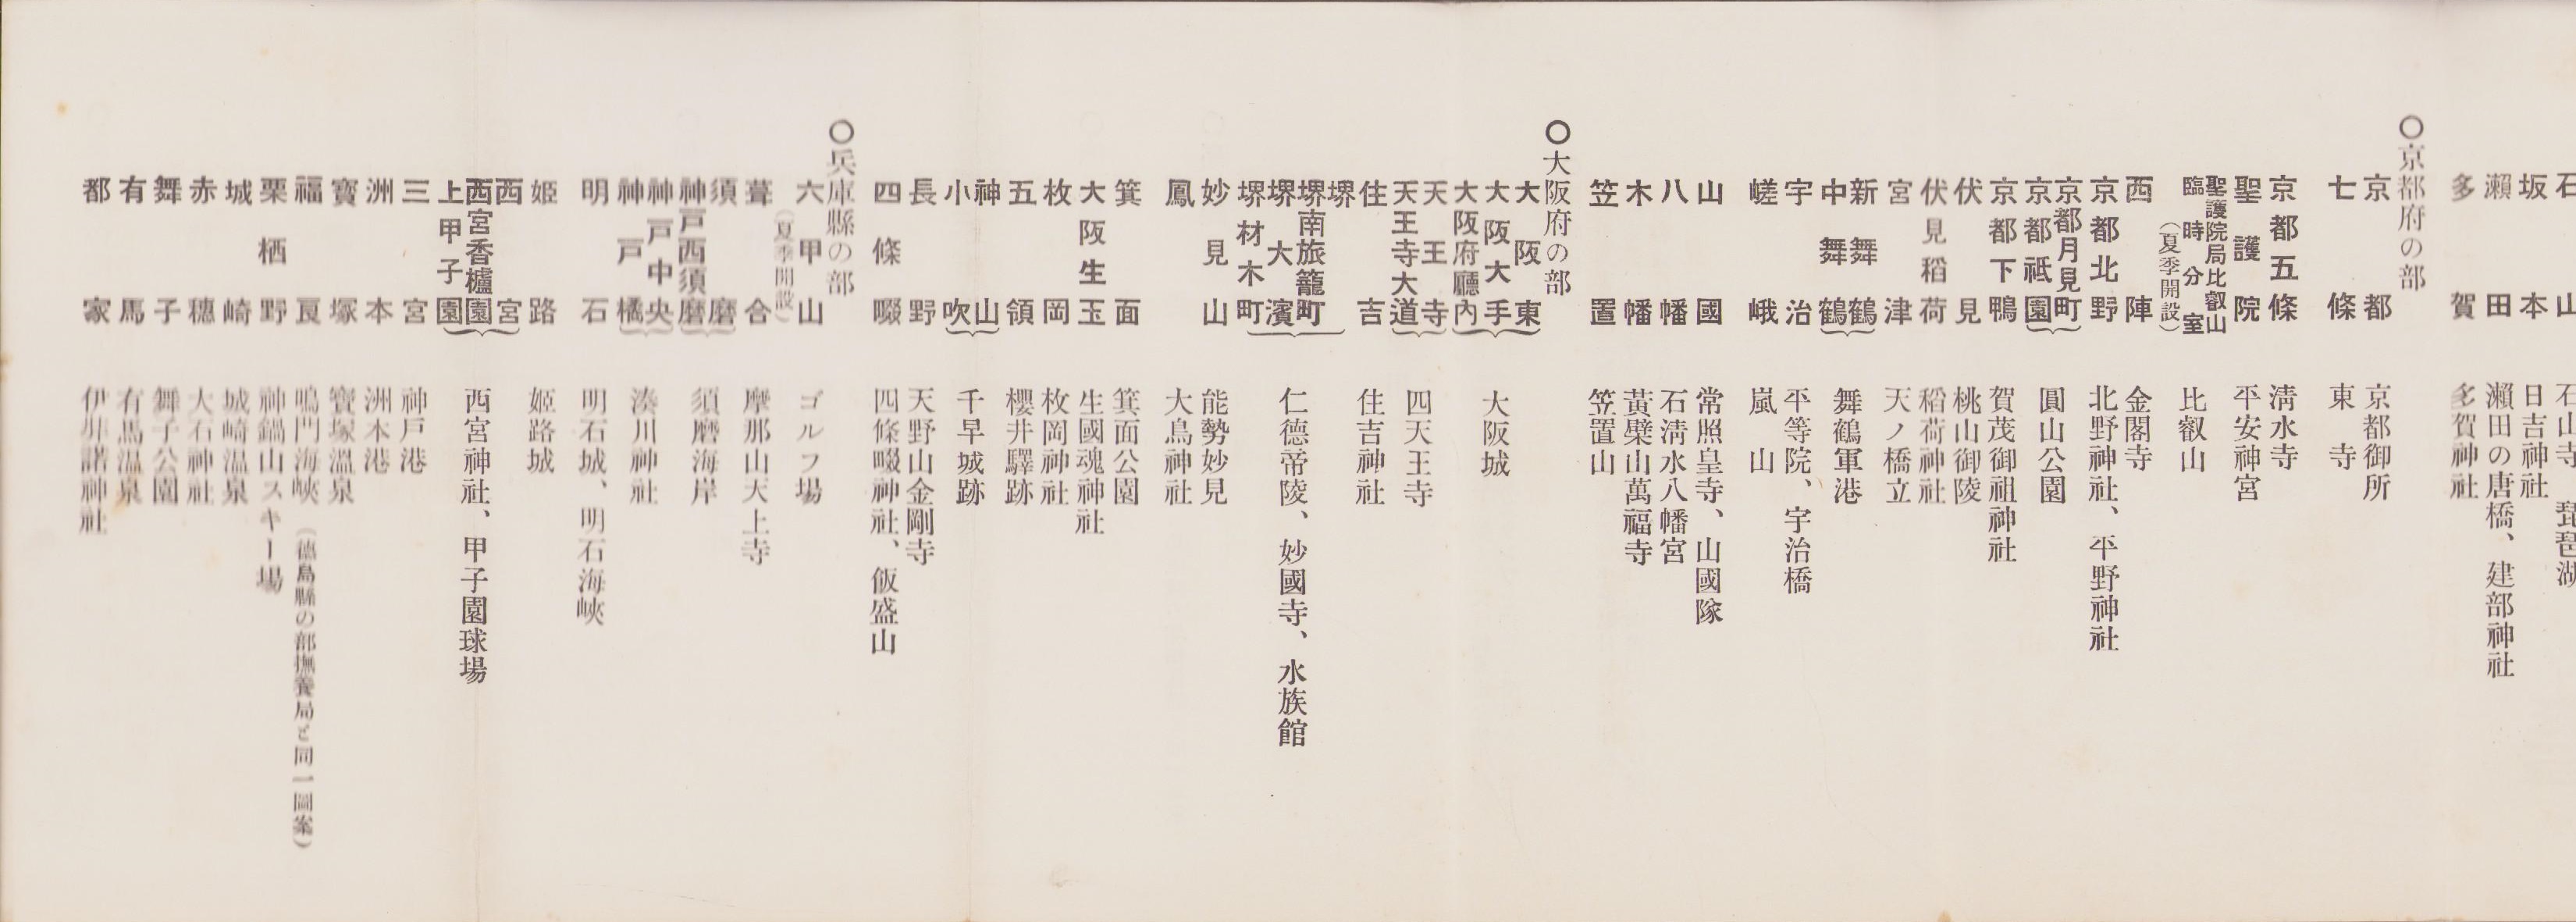 石山 石山寺 琵琶湖
坂本 日吉神社
瀨田 瀨田の唐橋、建部神社
多賀 多賀神社
〇京都府の部
京都 京都御所
七條 東寺
京都五條 淸水寺
聖護院 平安神宮
聖護院局比叡山
臨時分室 比叡山
（夏季開設）
西陣 金閣寺
京都北野 北野神社、平野神社
京都月見町
京都祗園 圓山公園
京都下鴨 賀茂御祖神社
伏見 桃山御陵
伏見稻荷 稻荷神社
宮津 天ノ橋立
新舞鶴
中舞鶴 舞鶴軍港
宇治 平等院、宇治橋
嵯峨 嵐山
山國 常照皇寺、山國隊
八幡 石淸水八幡宮
木幡 黃檗山萬福寺
笠置 笠置山
〇大阪府の部
大阪東
大阪大手 大阪城
大阪府廳內
天王寺
天王寺大道 四天王寺
住吉 住吉神社
堺
堺南旅籠町
堺大濱 仁德帝陵、妙國寺、水族館
堺材木町
妙見山 能勢妙見
鳳 大鳥神社
箕面 箕面公園
大阪生玉 生國魂神社
枚岡 枚岡神社
五領 櫻井驛跡
神山
小吹 千早城跡
長野 天野山金剛寺
四條畷 四條畷神社、飯盛山
〇兵庫縣の部
六甲山 ゴルフ場
（夏季開設）
葺合 摩那山天上寺
須磨
神戸西須磨 須磨海岸
神戸中央
神戸橘 湊川神社
明石 明石城、明石海峽
姬路 姬路城
西宮
西宮香櫨園 西宮神社、甲子園球場
上甲子園
三宮 神戸港
洲本 洲本港
寶塚 寶塚溫泉
福良 鳴門海峽（德島縣の部撫養局と同一圖案）
栗栖野 神鍋山スキー場
城崎 城崎溫泉
赤穗 大石神社
舞子 舞子公園
有馬 有馬溫泉
都家 伊弉諾神社